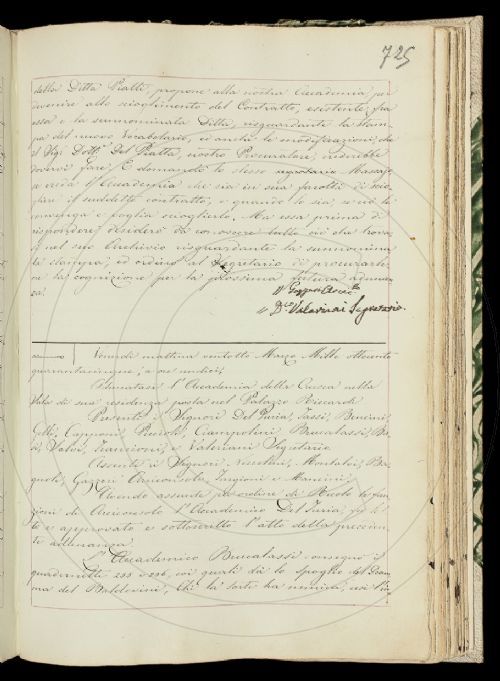 725
della Ditta Piatti, propone alla nostra Accademia per
devenire allo scioglimento del Contratto, esistente fra
essa e la sunnominata Ditta, risguardante la Stam-
pa del nuovo Vocabolario, ed anche le modificazioni che
il Sigr Dottr Del Piatta, nostro Procuratore, crederebbe
dovervi fare. E domanda lo stesso segretario
se creda l'Accademia che sia in sua facoltà di scio-
gliere il suddetto contratto, e quando lo sia, se ciò le
convenga e voglia scioglierlo. Ma essa prima di
rispondere desiderò da conoscere tutto ciò che trova-
si nel suo Archivio risguardante la sunnomina-
ta stampa, ed ordinò al Segretario di procurarle-
ne la cognizione per la prossima futura adunan-
za.
Dco Valeriani Segretario.
Venerdì mattina ventotto Marzo Mille ottocento
quarantacinque, a ore undici,
Adunatasi l'Accademia della Crusca nella
Sala di sua residenza posta nel Palazzo Riccardi
Presenti i Signori Del Furia, Tassi, Bencini,
Gelli, Capponi, Puccioli, Ciampolini, Brucalassi, Be-
si, Salvi, Francioni, e Valeriani Segretario
Assenti i Signori Nesti, Montalvi, Ba-
gnoli, Gazzeri Arciconsolo, Targioni e Mancini.
Avendo assunte per ordine di Ruolo le fun-
zioni di Arciconsolo l'Accademico Del Furia, fu let-
to e approvato e sottoscritto l'atto della preceden-
te adunanza.
L'Accademico Brucalassi consegnò i
quadernetti 255 e 256, coi quali dà lo spoglio del
del Baldovini, che la sorte ha